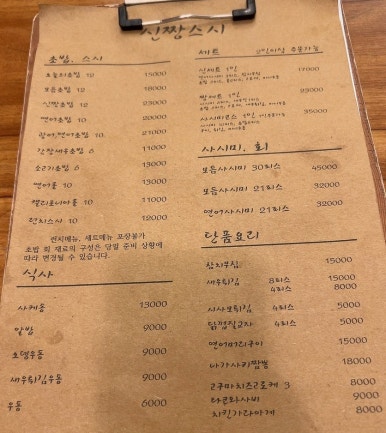 신짱스시
초밥, 스시
오늘의초밥 12 15000
모듬초밥 12 18000
신짱초밥 12 23000
연어초밥 10 20000
광어,연어초밥 10 21000
간장새우초밥 8 11000
소고기초밥 8 13000
연어롤 10 13000
캘리포니아롤 10 11000
런치스시 10 12000
런치메뉴, 세트메뉴 포장불가
초밥 회 재료의 구성은 당일 준비 상황에
따라 변경될 수 있습니다.
식사
사케동 13000
알밥 9000
오뎅우동 9000
새우튀김우동 9000
우동 6000
세트 2인이상 주문가능
신세트 1인 17000
짱세트 1인 23000
사시미코스 1인 35000
사시미, 회
모듬사시미 30피스 45000
모듬사시미 21피스 32000
연어사시미 21피스 32000
단품요리
참치무침 15000
새우튀김 8피스 15000
4피스 8000
시사모튀김 4피스 5000
닭껍질교자 4피스 5000
연어머리구이 15000
나가사키짬뽕 18000
고구마치즈고로케 3 8000
타코와사비 9000
치킨가라아게 8000